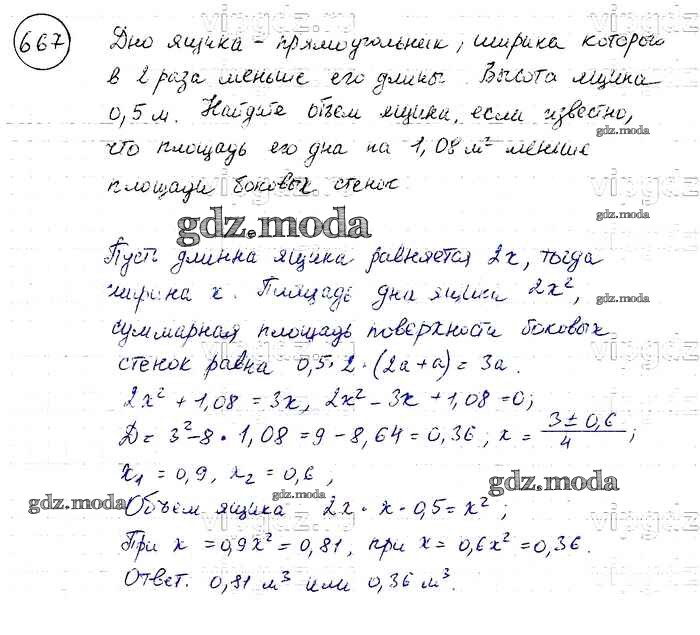 667
Дно ящика - прямоугольник, ширина которого
в 2 раза меньше его длины. Высота ящика
0,5 м. Найдите объем ящика, если известно,
что площадь его дна на 1,08 м² меньше
площади боковых стенок
gdz.moda
gdz.moda
gdz.moda
Пусть длинна ящика равняется 2x, тогда
ширина x. Площадь дна ящика 2x²,
суммарная площадь поверхности боковых
стенок равна 0,5 · 2 · (2a+a) = 3a.
2x² + 1,08 = 3x, 2x² - 3x + 1,08 = 0;
D = 3² - 8 · 1,08 = 9 - 8,64 = 0,36; x = (3 ± 0,6)/4;
x₁ = 0,9, x₂ = 0,6;
gdz.moda
gdz.moda
Объем ящика 2x · x · 0,5 = x²;
При x = 0,9x² = 0,81, при x = 0,6x² = 0,36.
Ответ. 0,81 м³ или 0,36 м³.